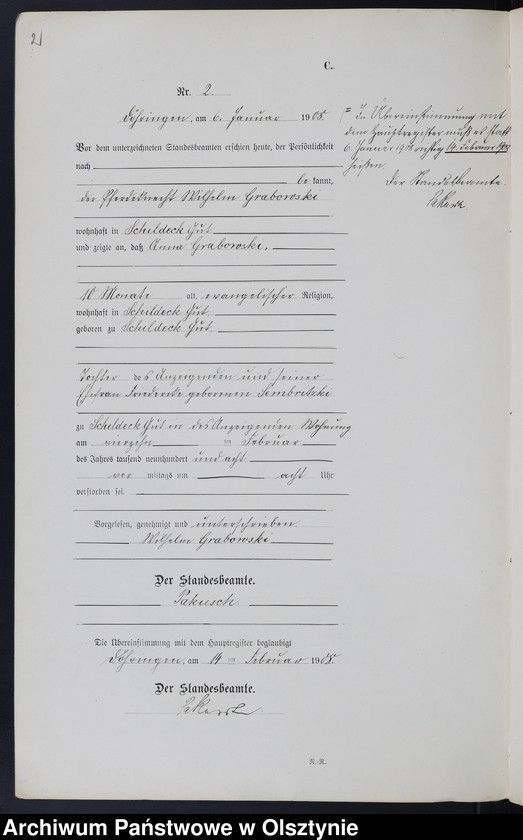 2
C.
Nr. 2.
Döhringen, am 6. Januar 1908.
Vor dem unterzeichneten Standesbeamten erschien heute, der Persönlichkeit
nach
bekannt,
der Pferdeknecht Wilhelm Grabowski
wohnhaft in Schildeck Gut
und zeigte an, daß Anna Grabowski,
10 Monate alt, evangelischer Religion,
wohnhaft in Schildeck Gut
geboren zu Schildeck Gut
Tochter des Anzeigenden und seiner
Ehefrau Friederike geborenen Sembritzki
zu Schildeck Gut in des Anzeigenden Wohnung
am vierzehn ten Februar
des Jahres tausend neunhundert und acht
vor mittags um acht Uhr
verstorben sei.
Vorgelesen, genehmigt und unterschrieben.
Wilhelm Grabowski
Der Standesbeamte.
Pakusch
Die Übereinstimmung mit dem Hauptregister beglaubigt
Döhringen, am 14 ten Februar 1908.
Der Standesbeamte.
= In Übereinstimmung mit
dem Hauptregister muß es statt
6. Januar 1908 richtig 14. Februar 1908
heißen.
Der Standesbeamte.
N.-R.
Archiwum Państwowe w Olsztynie